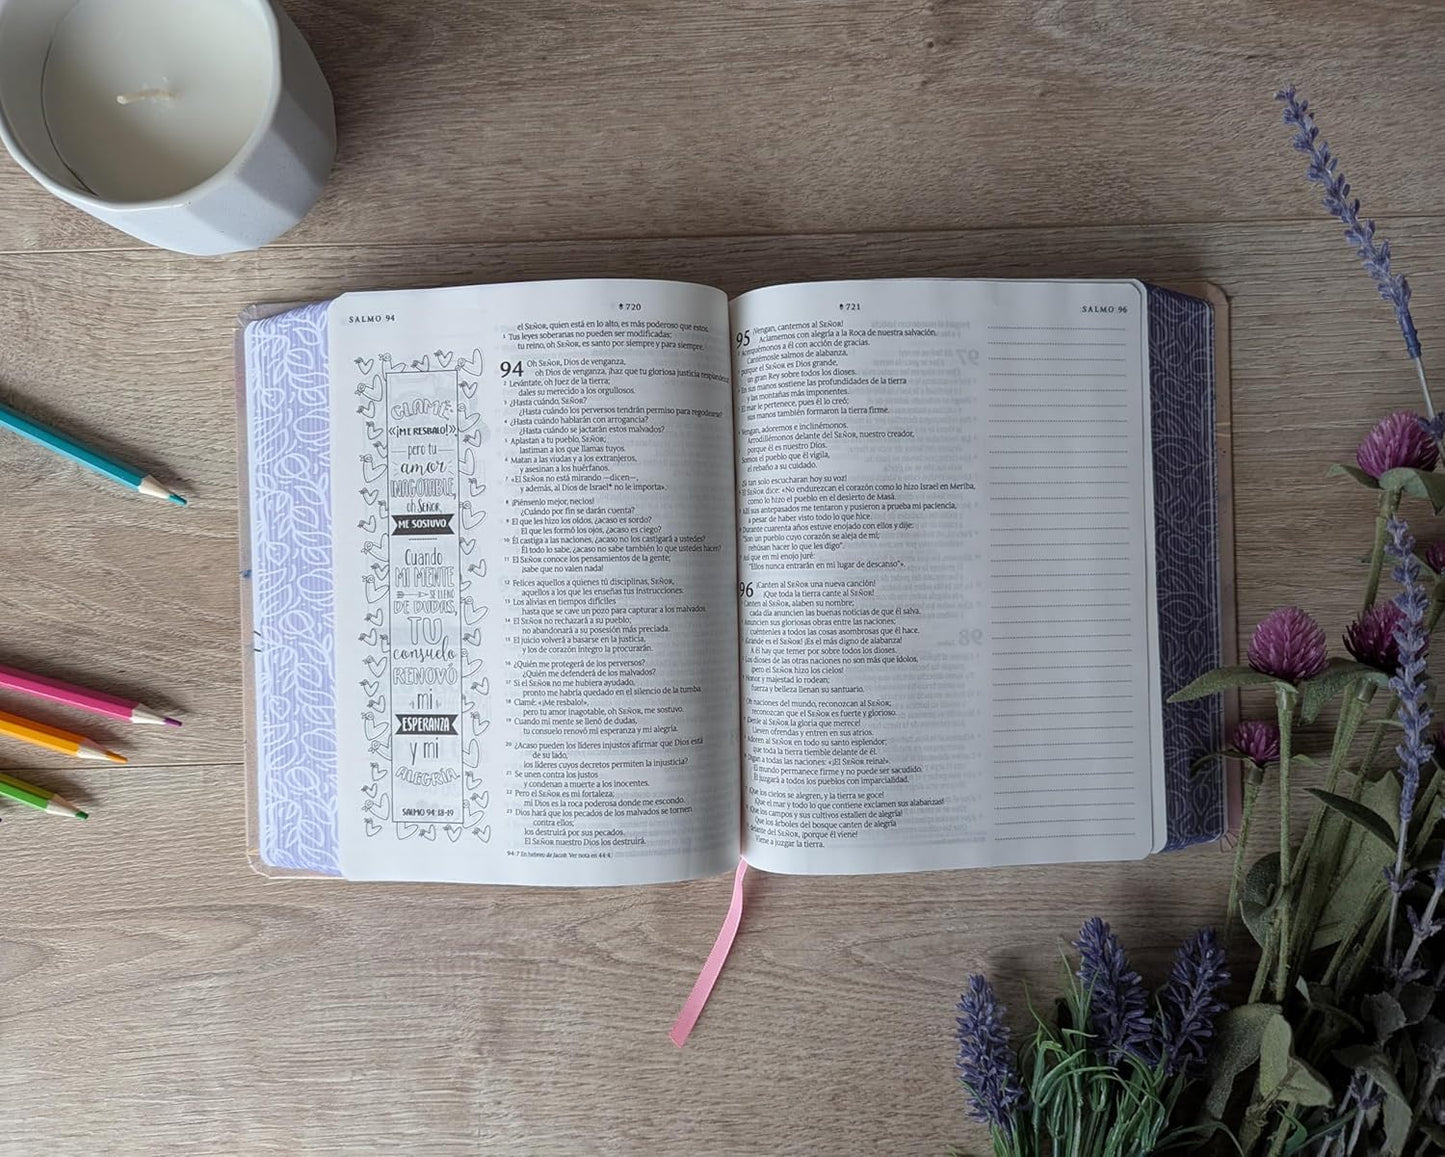 720
SALMO 94
CLAMÉ:
«¡ME RESBALO!»
pero tu
amor
INAGOTABLE,
oh SEÑOR,
ME SOSTUVO.
Cuando
MI MENTE
SE LLENÓ
DE DUDAS,
TU
consuelo
RENOVÓ
mi
ESPERANZA
y mi
ALEGRÍA.
SALMO 94:18-19
el SEÑOR, quien está en lo alto, es más poderoso que estos.
5 Tus leyes soberanas no pueden ser modificadas;
tu reino, oh SEÑOR, es santo por siempre y para siempre.
94 Oh SEÑOR, Dios de venganza,
oh Dios de venganza, ¡haz que tu gloriosa justicia resplandezca!
2 Levántate, oh Juez de la tierra;
dales su merecido a los orgullosos.
3 ¿Hasta cuándo, SEÑOR?
¿Hasta cuándo los perversos tendrán permiso para regodearse?
4 ¿Hasta cuándo hablarán con arrogancia?
¿Hasta cuándo se jactarán estos malvados?
5 Aplastan a tu pueblo, SEÑOR;
lastiman a los que llamas tuyos.
6 Matan a las viudas y a los extranjeros,
y asesinan a los huérfanos.
7 «El SEÑOR no está mirando —dicen—,
y además, al Dios de Israel* no le importa».
8 ¡Piénsenlo mejor, necios!
¿Cuándo por fin se darán cuenta?
9 El que les hizo los oídos, ¿acaso es sordo?
El que les formó los ojos, ¿acaso es ciego?
10 Él castiga a las naciones, ¿acaso no los castigará a ustedes?
Él todo lo sabe, ¿acaso no sabe también lo que ustedes hacen?
11 El SEÑOR conoce los pensamientos de la gente;
¡sabe que no valen nada!
12 Felices aquellos a quienes tú disciplinas, SEÑOR,
aquellos a los que les enseñas tus instrucciones.
13 Los alivias en tiempos difíciles
hasta que se cave un pozo para capturar a los malvados.
14 El SEÑOR no rechazará a su pueblo;
no abandonará a su posesión más preciada.
15 El juicio volverá a basarse en la justicia,
y los de corazón íntegro la procurarán.
16 ¿Quién me protegerá de los perversos?
¿Quién me defenderá de los malvados?
17 Si el SEÑOR no me hubiera ayudado,
pronto me habría quedado en el silencio de la tumba
18 Clamé: «¡Me resbalo!»,
pero tu amor inagotable, oh SEÑOR, me sostuvo.
19 Cuando mi mente se llenó de dudas,
tu consuelo renovó mi esperanza y mi alegría.
20 ¿Acaso pueden los líderes injustos afirmar que Dios está
de su lado,
los líderes cuyos decretos permiten la injusticia?
21 Se unen contra los justos
y condenan a muerte a los inocentes.
22 Pero el SEÑOR es mi fortaleza;
mi Dios es la roca poderosa donde me escondo.
23 Dios hará que los pecados de los malvados se tornen
contra ellos;
los destruirá por sus pecados.
El SEÑOR nuestro Dios los destruirá.
94:7 En hebreo de Jacob. Ver nota en 44:4.
721
SALMO 96
95 ¡Vengan, cantemos al SEÑOR!
Aclamemos con alegría a la Roca de nuestra salvación.
Acerquémonos a él con acción de gracias.
Cantémosle salmos de alabanza,
porque el SEÑOR es Dios grande,
un gran Rey sobre todos los dioses.
En sus manos sostiene las profundidades de la tierra
y las montañas más imponentes.
El mar le pertenece, pues él lo creó;
sus manos también formaron la tierra firme.
Vengan, adoremos e inclinémonos.
Arrodillémonos delante del SEÑOR, nuestro creador,
porque él es nuestro Dios.
Somos el pueblo que él vigila,
el rebaño a su cuidado.
¡Si tan solo escucharan hoy su voz!
El SEÑOR dice: «No endurezcan el corazón como lo hizo Israel en Meriba,
como lo hizo el pueblo en el desierto de Masá.
Allí sus antepasados me tentaron y pusieron a prueba mi paciencia,
a pesar de haber visto todo lo que hice.
Durante cuarenta años estuve enojado con ellos y dije:
"Son un pueblo cuyo corazón se aleja de mí;
rehúsan hacer lo que les digo".
Así que en mi enojo juré:
"Ellos nunca entrarán en mi lugar de descanso"».
96 ¡Canten al SEÑOR una nueva canción!
¡Que toda la tierra cante al SEÑOR!
Canten al SEÑOR, alaben su nombre;
cada día anuncien las buenas noticias de que él salva.
Anuncien sus gloriosas obras entre las naciones;
cuéntenles a todos las cosas asombrosas que él hace.
¡Grande es el SEÑOR! ¡Es el más digno de alabanza!
A él hay que temer por sobre todos los dioses.
Los dioses de las otras naciones no son más que ídolos,
¡pero el SEÑOR hizo los cielos!
Honor y majestad lo rodean;
fuerza y belleza llenan su santuario.
Oh naciones del mundo, reconozcan al SEÑOR;
reconozcan que el SEÑOR es fuerte y glorioso.
¡Denle al SEÑOR la gloria que merece!
Lleven ofrendas y entren en sus atrios.
Adoren al SEÑOR en todo su santo esplendor;
que toda la tierra tiemble delante de él.
Digan a todas las naciones: «¡El SEÑOR reina!».
El mundo permanece firme y no puede ser sacudido.
Él juzgará a todos los pueblos con imparcialidad.
¡Que los cielos se alegren, y la tierra se goce!
¡Que el mar y todo lo que contiene exclamen sus alabanzas!
¡Que los campos y sus cultivos estallen de alegría!
¡Que los árboles del bosque canten de alegría
delante del SEÑOR, ¡porque él viene!
Viene a juzgar la tierra.